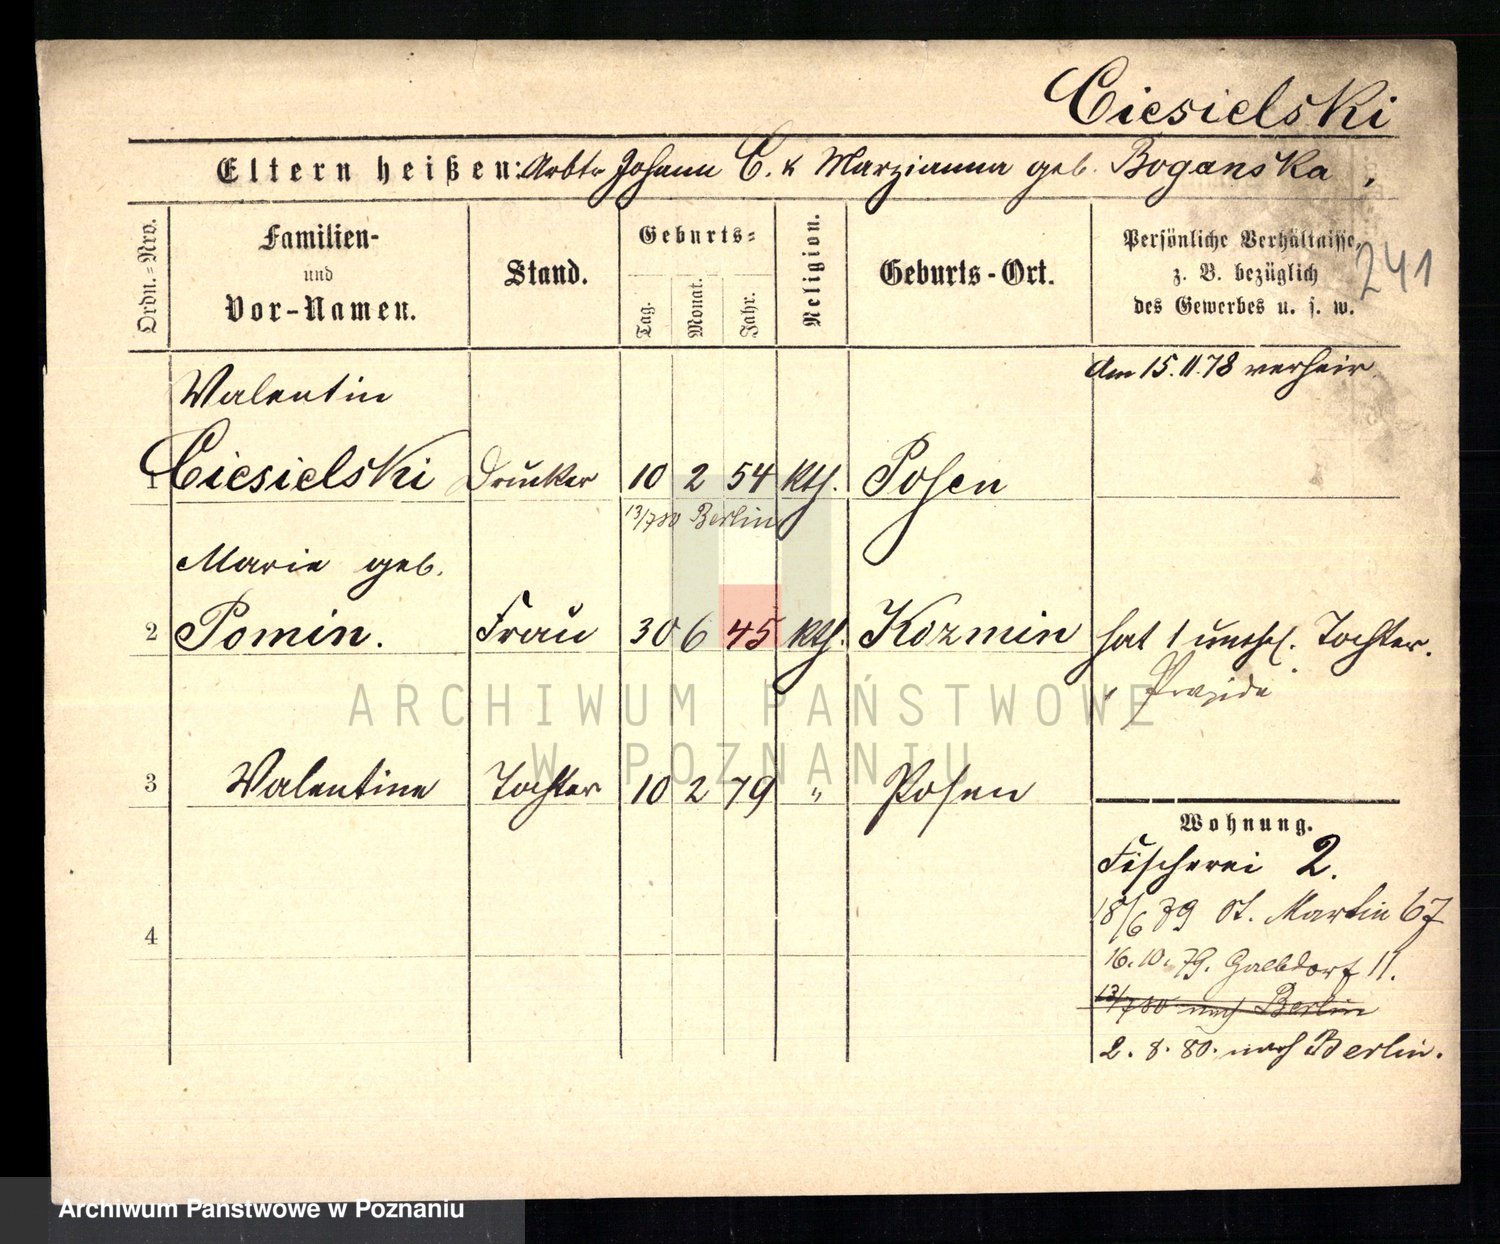 Ciesielski
Eltern heißen: Arbtr Johann C. & Marzianna geb. Boganska,
Ordn.=Nro.
Familien-
und
Vor-Namen.
Stand.
Geburts=
Tag.
Monat.
Jahr.
Religion.
Geburts-Ort.
Persönliche Verhältnisse,
z. B. bezüglich
des Gewerbes u. s. w.
241
Am 15.11.78 verheir.
Valentin
1 Ciesielski Drucker 10 2 54 kth. Posen
13/7 80 Berlin
Marie geb.
2 Pomin. Frau 30 6 45 kth. Kozmin hat 1 unehl. Tochter.
3 Valentine Tochter 10 2 79 " Posen
Wohnung.
Fischerei 2.
4
18/6 79 St. Martin 67
16.10.79. Halbdorf 11.
13/7 80 nach Berlin
2. 8. 80. nach Berlin.
ARCHIWUM PAŃSTWOWE
W POZNANIU
Archiwum Państwowe w Poznaniu